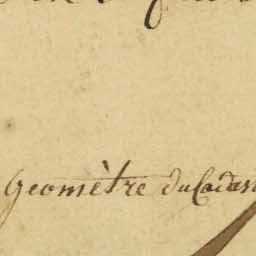 Geomètre du Cadas